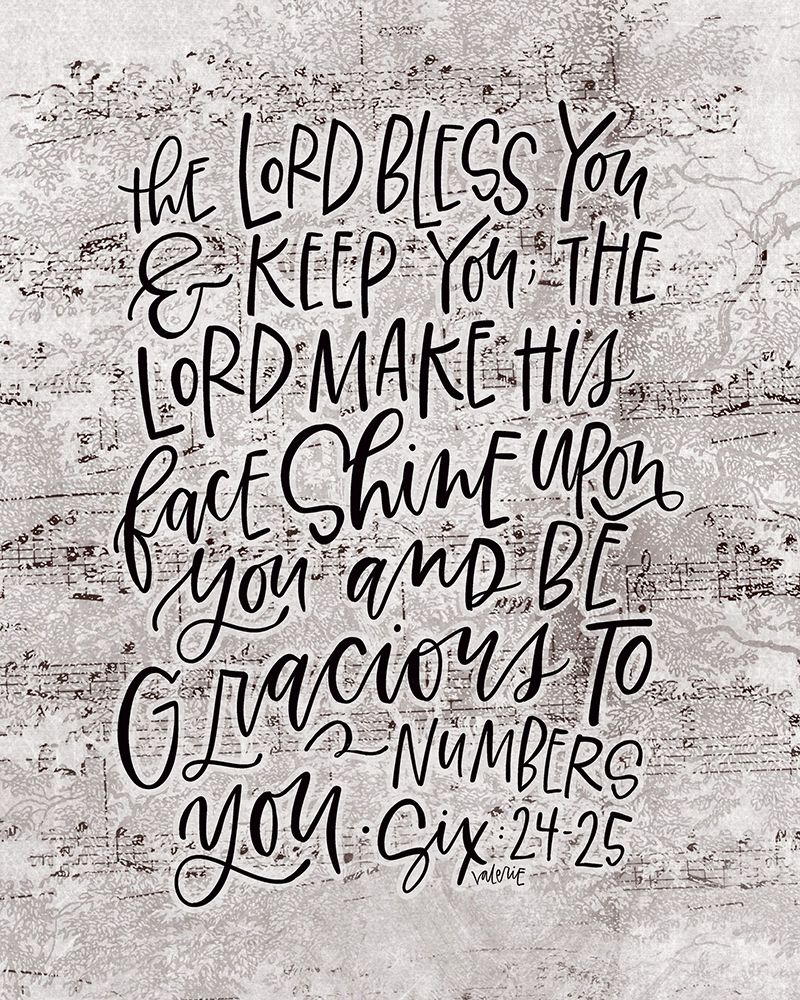 the LORD BLESS You
& KEEP You; THE
LORD MAKE His
face Shine upon
you and BE
Gracious To
you. NUMBERS
Six:24-25
valerie